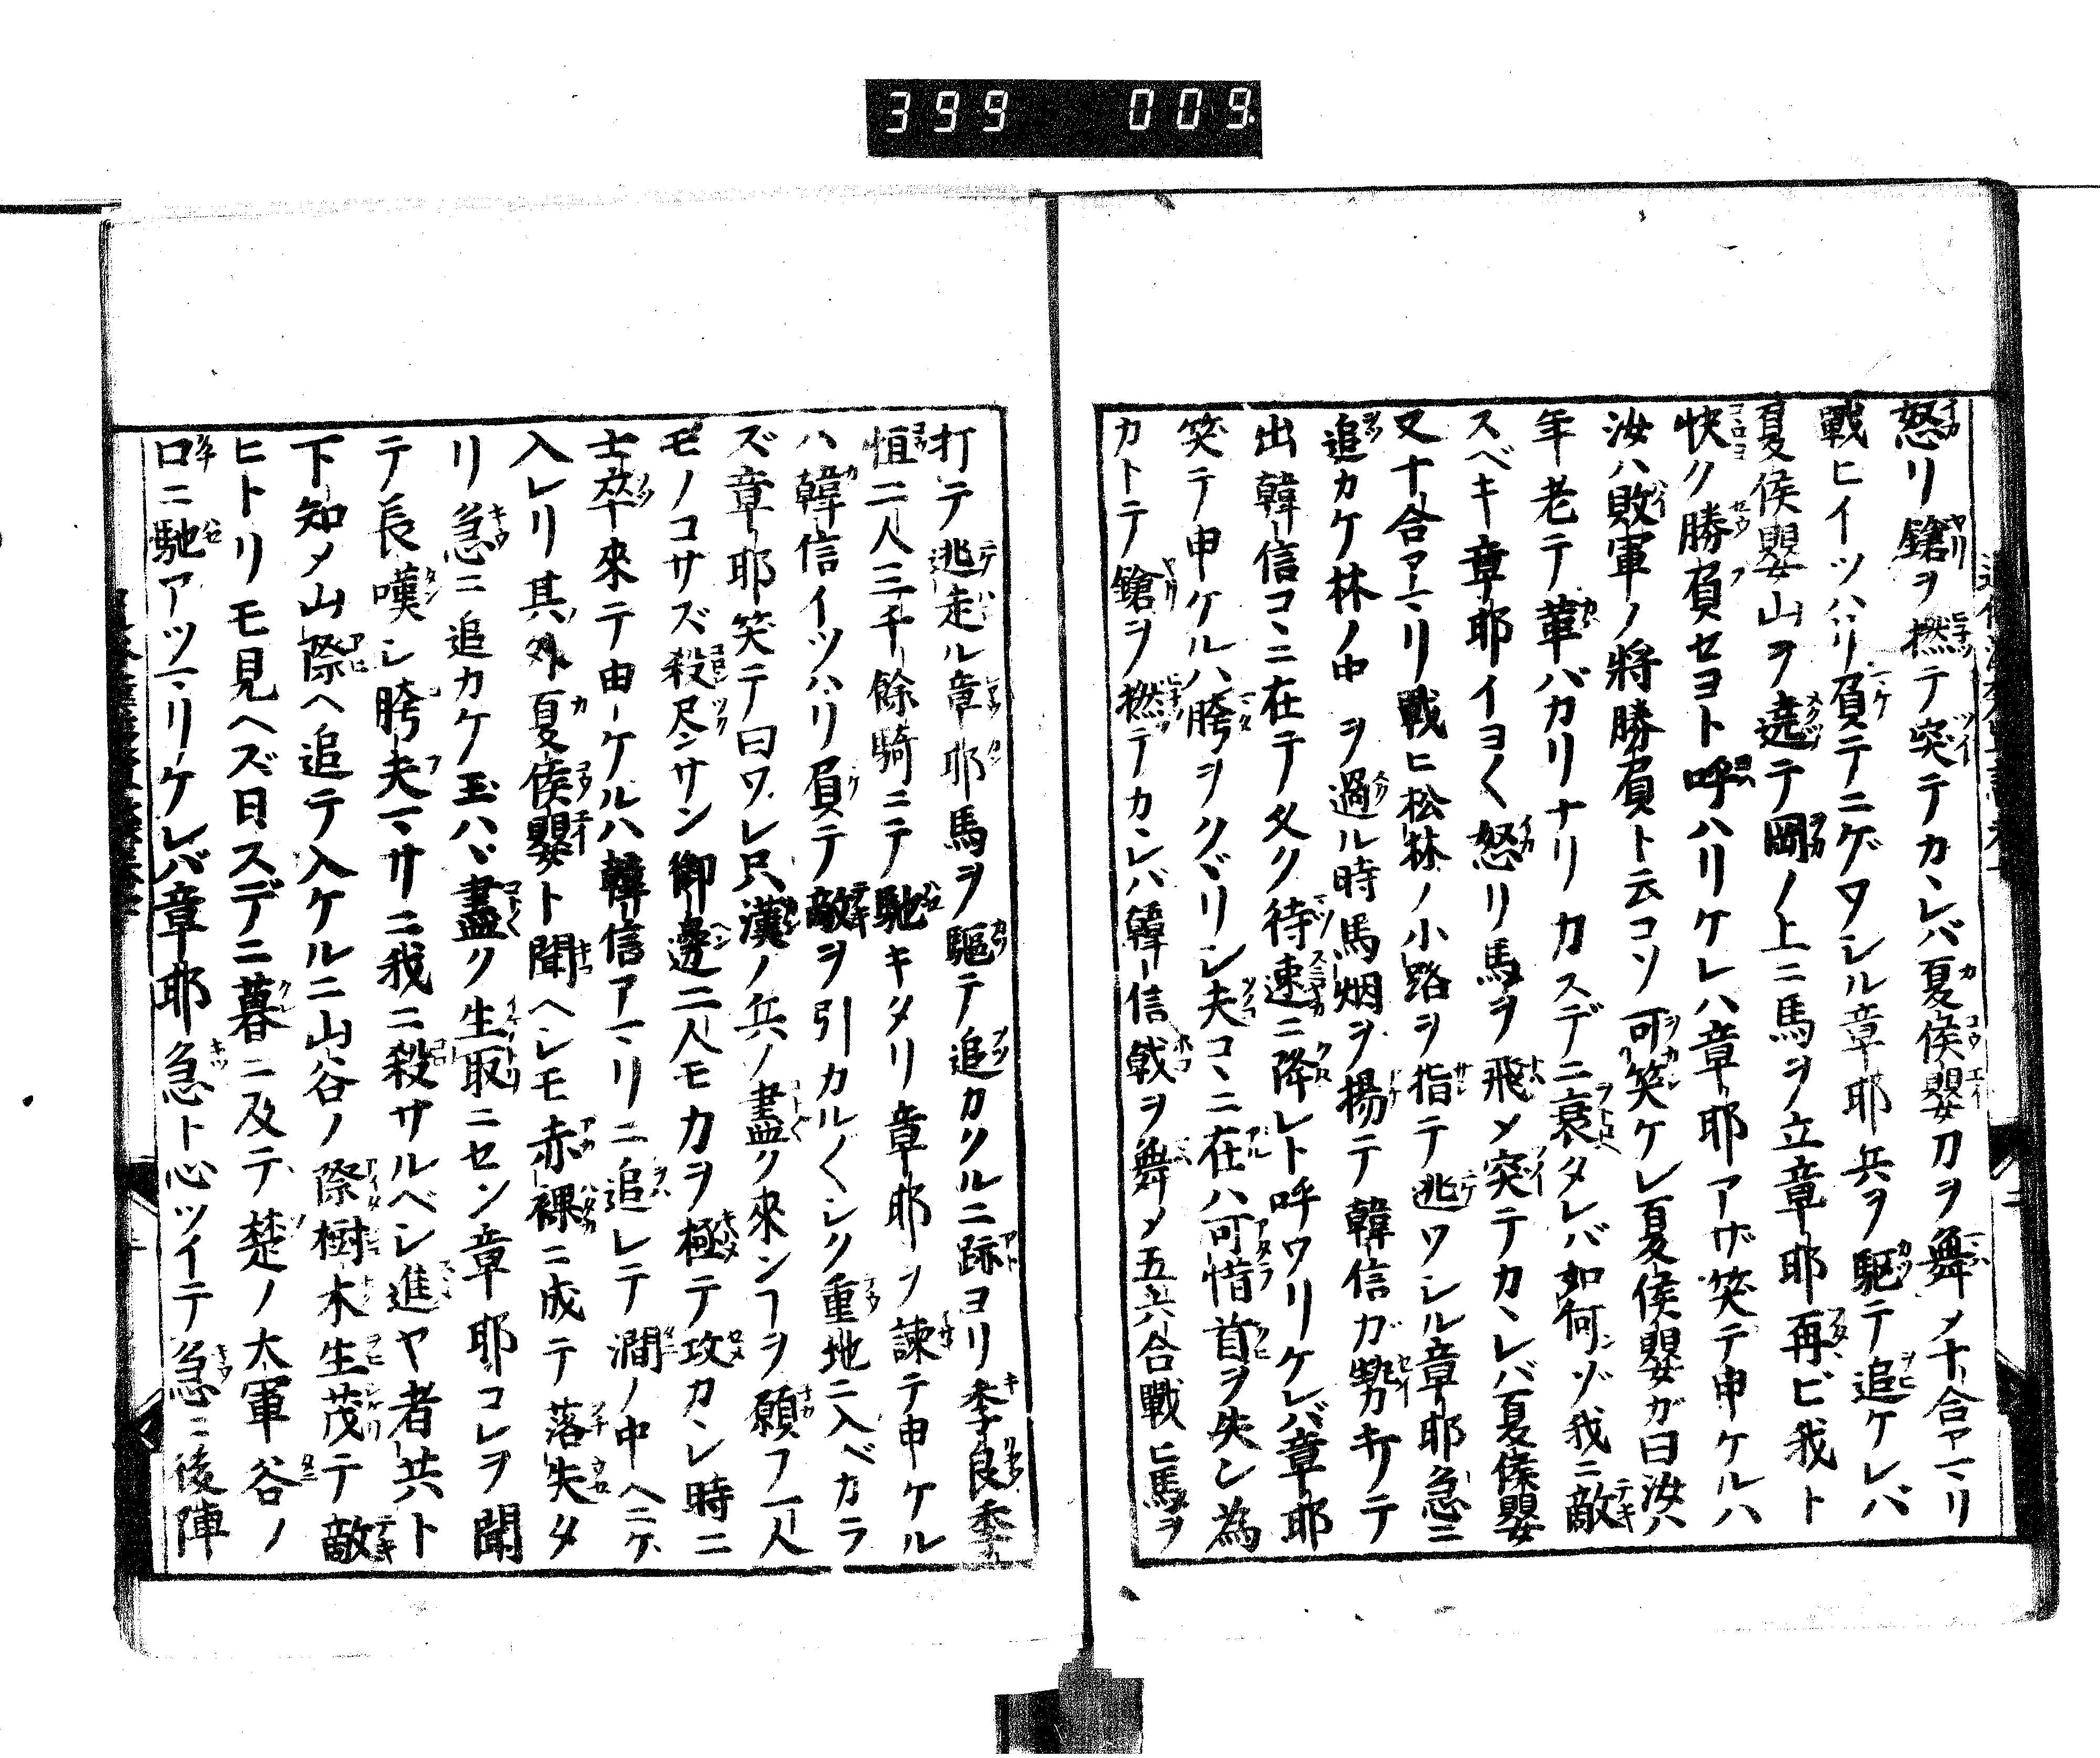 399 009
怒リ鎗ヲ撚テ突テカヽレバ夏侯嬰刀ヲ舞メ十合アマリ
戰ヒイツハリ負テニゲワシル章耶兵ヲ駆テ追ケレバ
夏侯嬰山ヲ遶テ岡ノ上ニ馬ヲ立章耶再ビ我ト
快ク勝負セヨト呼ハリケレハ章耶アザ笑テ申ケルハ
汝ハ敗軍ノ將勝負ト云コソ可笑ケレ夏侯嬰ガ曰汝ハ
年老テ革バカリナリカスデニ衰タレバ如何ゾ我ニ敵
スベキ章耶イヨ〱怒リ馬ヲ飛メ突テカヽレバ夏侯嬰
又十合アマリ戰ヒ松林ノ小路ヲ指テ逃ワシル章耶急ニ
追カケ林ノ中ヲ過ル時馬烟ヲ揚テ韓信ガ勢カキテ
出韓信コヽニ在テ久ク待速ニ降レト呼ワリケレバ章耶
笑テ申ケルハ胯ヲクヾリシ夫コヽニ在ハ可惜首ヲ失ン為
カトテ鎗ヲ撚テカヽレバ韓信戟ヲ舞メ五六合戰ヒ馬ヲ
打テ逃走ル章耶馬ヲ驅テ追カクルニ跡ヨリ季良季
恒二人三千餘騎ニテ馳キタリ章耶ヲ諫テ申ケル
ハ韓信イツハリ負テ敵ヲ引カル〱シク重地ニ入ベカラ
ズ章耶笑テ曰ワレ只漢ノ兵ノ盡ク來ンヿヲ願フ一人
モノコサズ殺尽サン御邊二人モ力ヲ極テ攻カヽレ時ニ
士卒來テ申ケルハ韓信アマリニ追レテ澗ノ中ヘニゲ
入レリ其外夏侯嬰ト聞ヘシモ赤裸ニ成テ落失タ
リ急ニ追カケ玉ハヾ盡ク生取ニセン章耶コレヲ聞
テ長嘆シ胯夫マサニ我ニ殺サルベシ進ヤ者共ト
下知メ山際ヘ追テ入ケルニ山谷ノ際樹木生茂テ敵
ヒトリモ見ヘズ日スデニ暮ニ及テ楚ノ大軍谷ノ
口ニ馳アツマリケレバ章耶急ト心ツイテ急ニ後陣